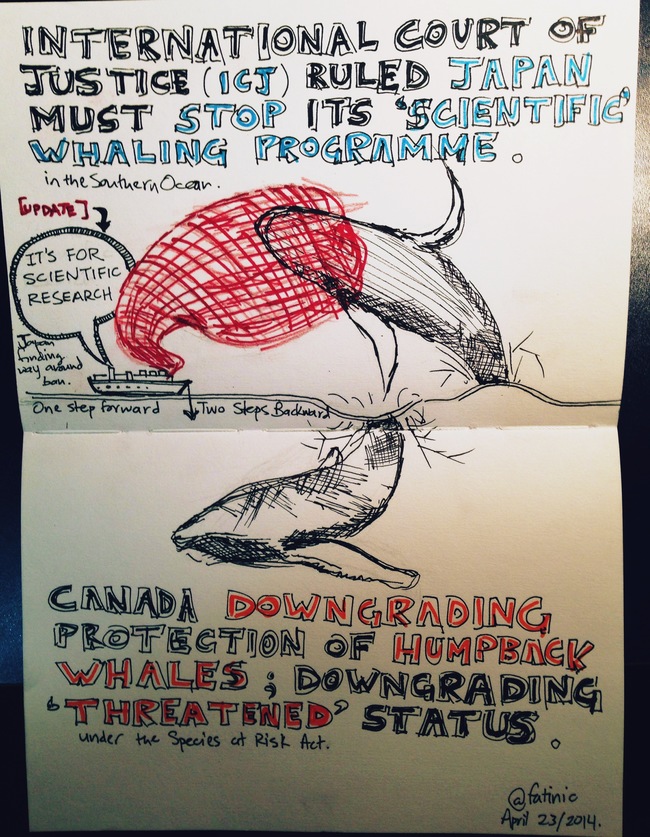 INTERNATIONAL COURT OF
JUSTICE (ICJ) RULED JAPAN
MUST STOP ITS 'SCIENTIFIC'
WHALING PROGRAMME.
in the Southern Ocean.
[UPDATE]
IT'S FOR
SCIENTIFIC
RESEARCH
Japan
finding
way around
ban.
One step forward
Two Steps Backward
CANADA DOWNGRADING
PROTECTION OF HUMPBACK
WHALES; DOWNGRADING
'THREATENED' STATUS.
under the Species at Risk Act.
@fatinic
April 23/2014.